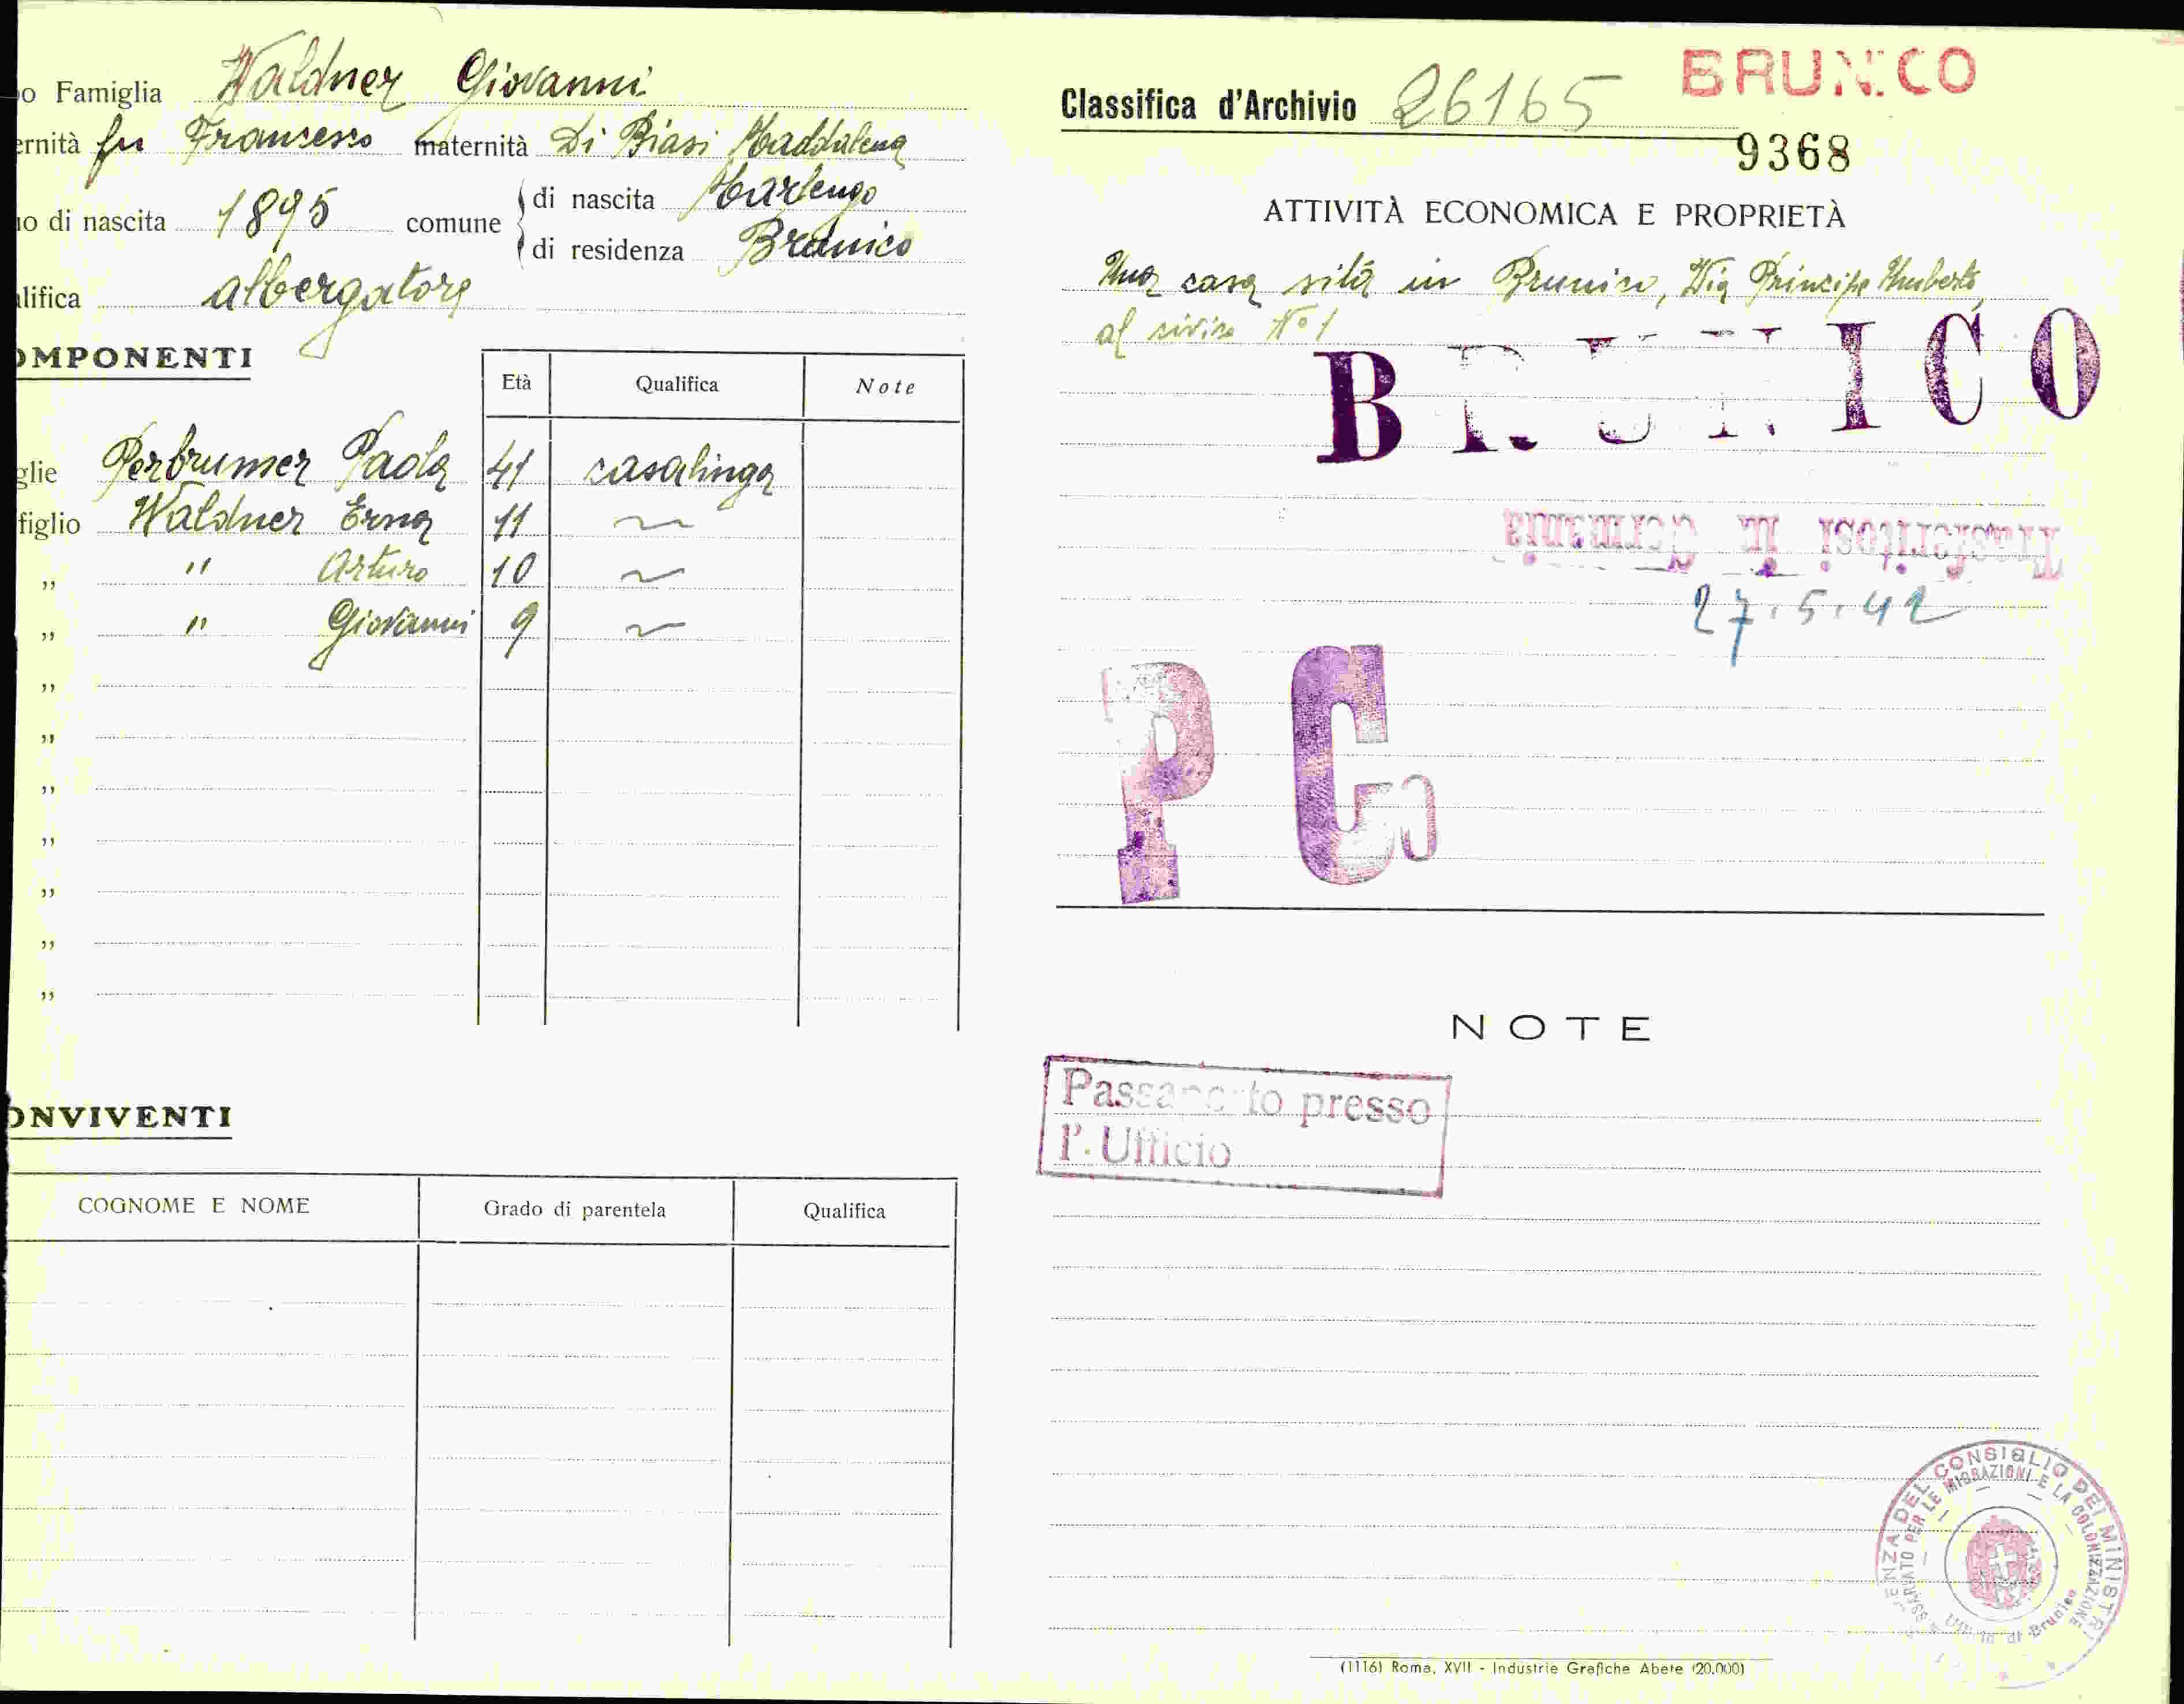 o Famiglia Waldner Giovanni
ernità fu Francesco maternità Di Biasi Maddalena
o di nascita 1895 comune di nascita Marlengo
di residenza Brunico
lifica albergatore
OMPONENTI
Età Qualifica Note
glie Perbrumer Paola 41 casalinga
figlio Waldner Erna 11 ~
„ " Arturo 10 ~
„ " Giovanni 9 ~
„
„
„
„
„
„
„
ONVIVENTI
COGNOME E NOME Grado di parentela Qualifica
BRUNICO
Classifica d'Archivio 26165
9368
ATTIVITÀ ECONOMICA E PROPRIETÀ
Una casa sita in Brunico, Via Principe Umberto,
al civico N° 1
BRUNICO
Trasferitosi in Germania
27.5.42
P C
NOTE
Passaporto presso
l'Ufficio
CONSIGLIO DEI MINISTRI
PER LE MIGRAZIONI E LA COLONIZZAZIONE
Ufficio di Brunico
(1116) Roma, XVII - Industrie Grafiche Abete (20.000)